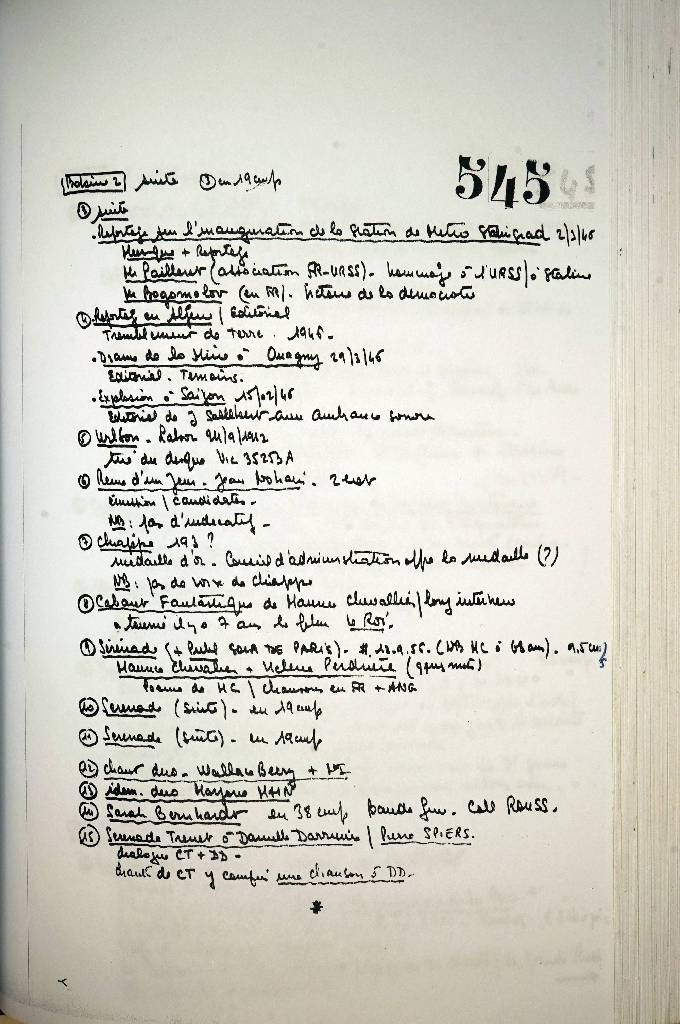 545
suite ③ en 19 cm/s
③ suite
. Reportage sur l'inauguration de la Station de Métro Stalingrad 2/3/46
Musique + Reportage
Mr Pailleret (association FR-URSS). hommage à l'URSS/à Staline
Mr Bogomolov (en FR/. victoire de la démocratie
④ Reportage en / Editorial
Tremblement de Terre. 1946.
. Drame de la Mine à 29/3/46
Editorial. Temoins.
. Explosion à Saigon 15/02/46
Editorial de J avec ambiance sonore
⑤ 24/9/1912
tiré du disque Vic 35253A
⑥ Reine d'un Jour. Jean Nohain.
émission / candidates.
NB: pas d'indicatif.
⑦ Chiappe 193 ?
médaille d'or. Conseil d'administration offre la médaille (?)
NB: pas de voix de Chiappe
⑧ Cabaret Fantastique de Maurice Chevallier / long interview
a tourné il y a 7 ans le film Le Roi.
⑨ Sérénade (+ Publ SOIR DE PARIS). (NB MC à 68 ans). 9.5 cm/s
Maurice Chevalier + Helene Perdrière (qques mots)
Poème de MC / chansons en FR + ANG
⑩ Serenade (suite). en 19 cm/s
⑪ Serenade (suite). en 19 cm/s
⑫ chant duo. Wallace Beery +
⑬ idem. duo Marjorie MAIN
⑭ Sarah Bernhardt en 38 cm/s bande Coll ROUSS.
⑮ Serenade Trenet à Danielle Darrieux / Pierre SPIERS.
dialogue CT + DD.
chante de CT y compris une chanson à DD.
*